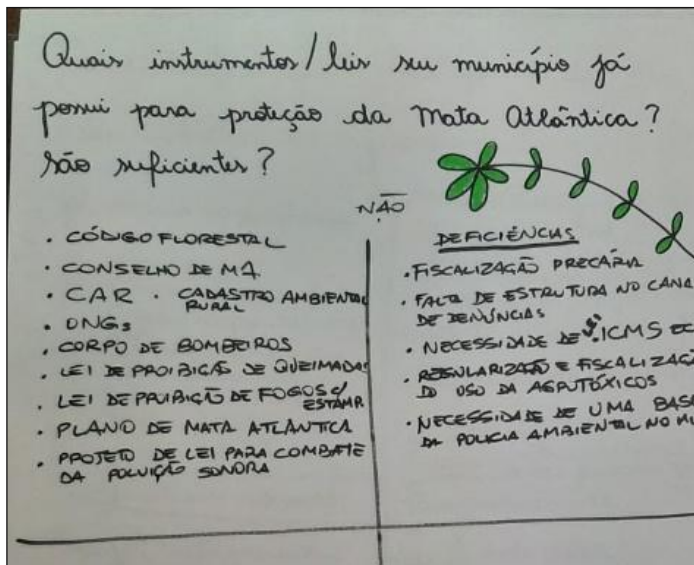 Quais instrumentos/leis seu município já
possui para proteção da Mata Atlântica?
São suficientes?
NÃO
· CÓDIGO FLORESTAL
· CONSELHO DE MA.
· CAR · CADASTRO AMBIENTAL
RURAL
· ONGs
· CORPO DE BOMBEIROS
· LEI DE PROIBIÇÃO DE QUEIMADAS
· LEI DE PROIBIÇÃO DE FOGOS C/
ESTAMP.
· PLANO DE MATA ATLÂNTICA
· PROJETO DE LEI PARA COMBATE
DA POLUIÇÃO SONORA
DEFICIÊNCIAS
· FISCALIZAÇÃO PRECÁRIA
· FALTA DE ESTRUTURA NO CANA
DE DENÚNCIAS
· NECESSIDADE DE ICMS EC
· REGULARIZAÇÃO E FISCALIZAÇÃ
DO USO DA AGROTÓXICOS
· NECESSIDADE DE UMA BAS
DA POLICIA AMBIENTAL NO MU